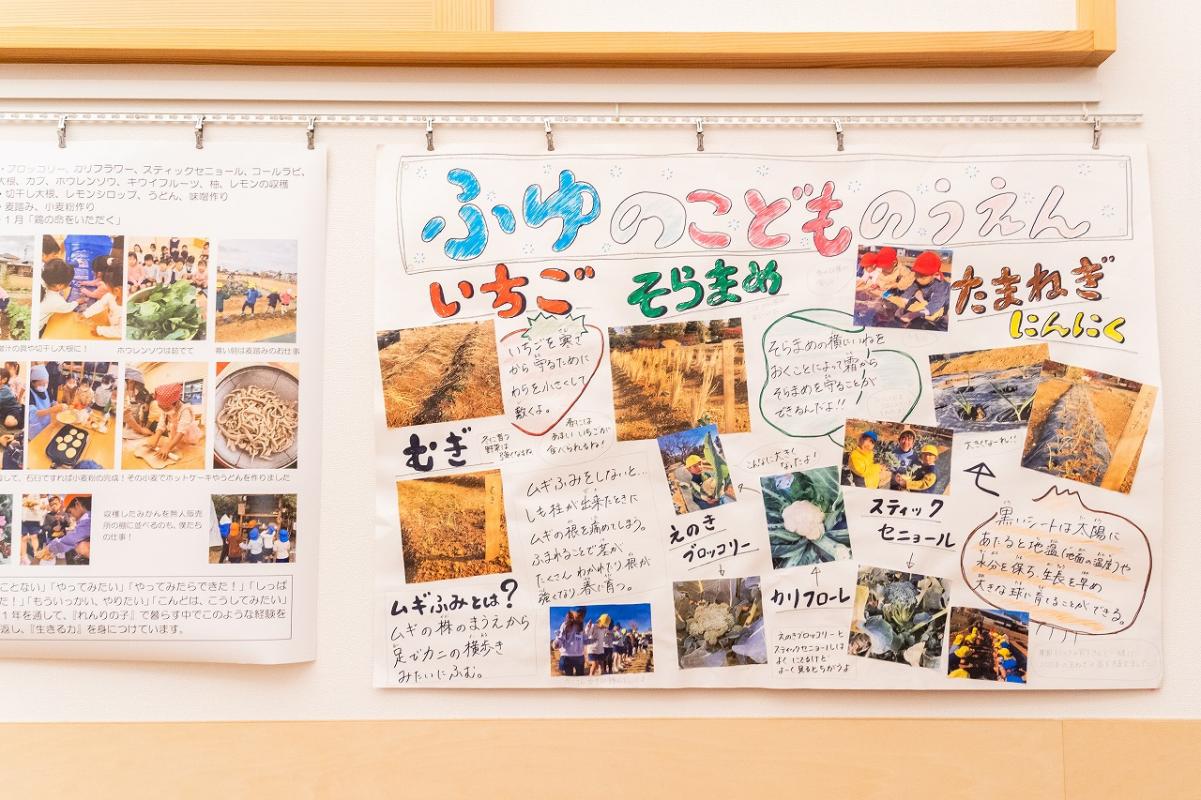 ・ブロッコリー、カリフラワー、スティックセニョール、コールラビ、
大根、カブ、ホウレンソウ、キウイフルーツ、柚、レモンの収穫
・切干し大根、レモンシロップ、うどん、味噌作り
・麦踏み、小麦粉作り
1月「鶏の命をいただく」
汁の具や切干し大根に！
ホウレンソウは茹でて
寒い朝は麦踏みのお仕事
して、石臼ですれば小麦粉の完成！その小麦でホットケーキやうどんを作りました
収穫したみかんを無人販売
所の棚に並べるのも、僕たち
の仕事！
ことない」「やってみたい」「やってみたらできた！」「しっぱ
た！」「もういっかい、やりたい」「こんどは、こうしてみたい」
1年を通して、『れんりの子』で暮らす中でこのような経験を
返し、『生きる力』を身につけています。
ふゆのこどものうえん
いちご
いちごを寒さ
から守るために
わらを小さくして
敷くよ。
冬に育つ
野菜は
強くなるね
春には
あまいいちごが
食べられるね！
そらまめ
そらまめの横にいねを
おくことによって霜から
そらまめを守ることが
できるんだよ！！
たまねぎ
にんにく
大きくなーれ！！
黒いシートは太陽に
あたると地温(地面の温度)や
水分を保ち、生長を早め
大きな球に育てることができる。
むぎ
ムギふみをしないと…
しも柱が出来たときに
ムギの根を痛めてしまう。
ふまれることで茎が
たくさんわかれたり根が
強くなり春に育つ。
ムギふみとは？
ムギの株のまうえから
足でカニの横歩き
みたいにふむ。
えのき
ブロッコリー
こんなに大きく
なったよ！
カリフローレ
えのきブロッコリーと
スティックセニョールは
よくにてるけど
よーく見るとちがうよ
スティック
セニョール